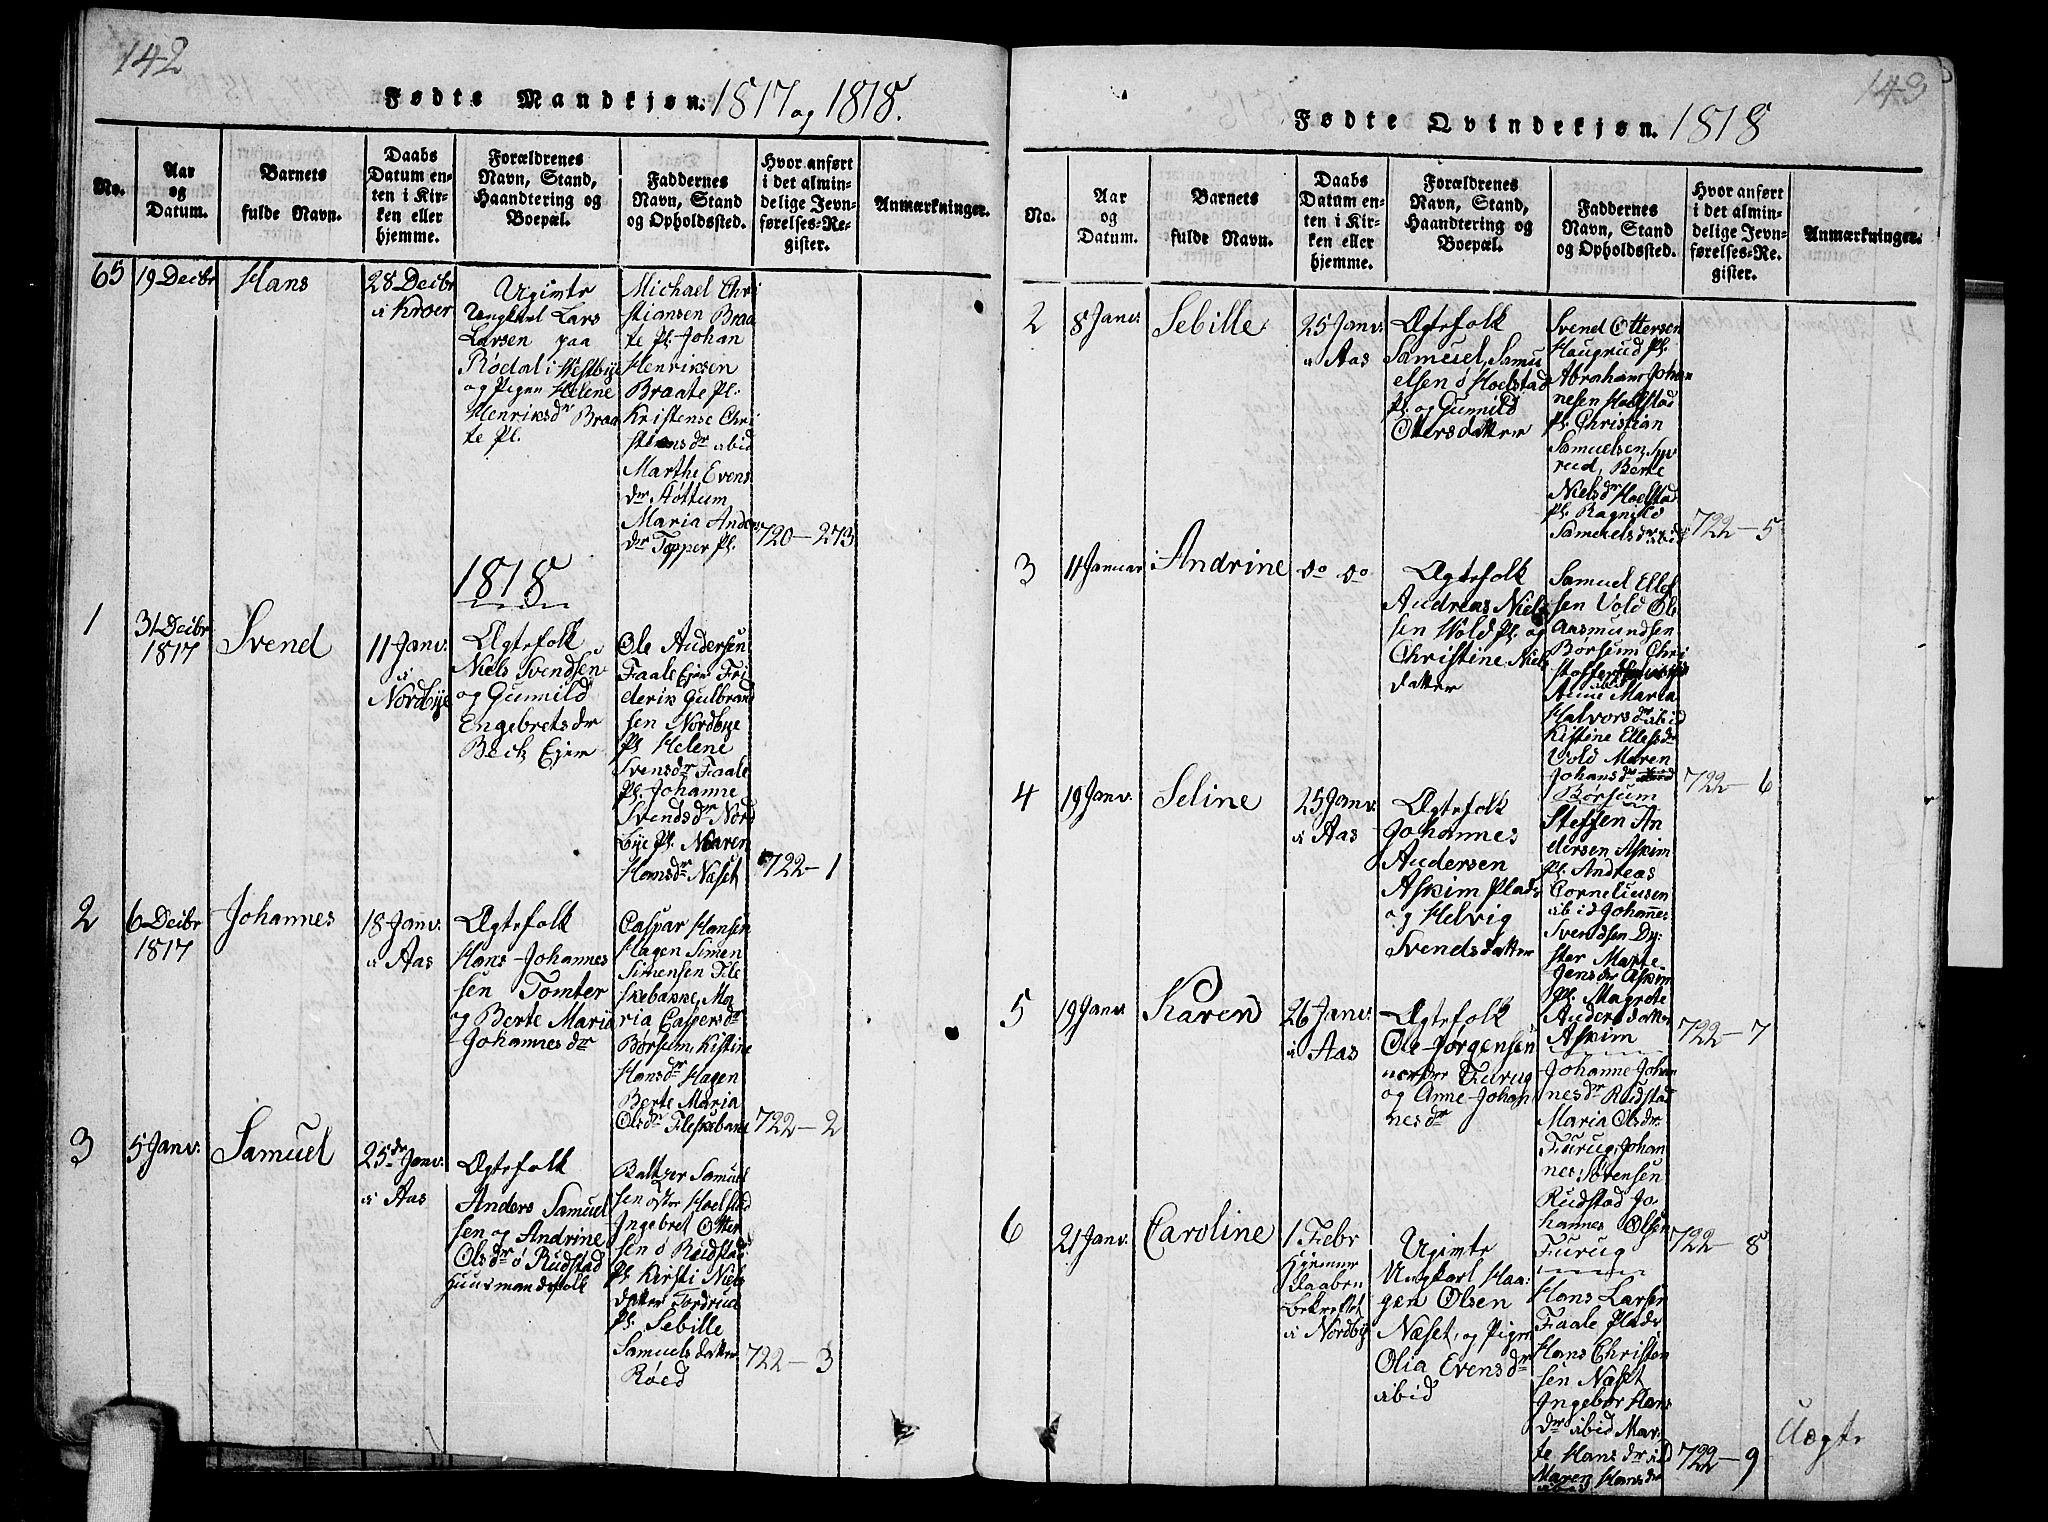 142
Fødte Mandkjøn. 1817 og 1818.
No.
Aar
og
Datum.
Barnets
fulde Navn.
Daabs
Datum en-
ten i Kir-
ken eller
hjemme.
Forældrenes
Navn, Stand,
Haandtering og
Boepæl.
Faddernes
Navn, Stand
og Opholdssted.
Hvor anført
i det almin-
delige Jevn-
førelses-Re-
gister.
Anmærkninger.
65
19 Decbr
Hans
28 Decbr
i Kroer
Ugimte
Ungkarl Lars
Larsen paa
Rødal i Westbye
og Pigen Helene
Henriksdr Braa
te Pl.
Michael Chri
stiansen Braa
te Pl. Johan
Henriksen
Braate Pl.
Kristense Chri
stiansdr ibid
Marthe Evens
dr Støttum
Maria Anders
dr Topper Pl.
720-273
1818
1
31 Decbr
1817
Svend
11 Janv.
i
Nordbye
Ægtefolk
Niels Svendsen
og Gunnild
Engebretsdr
Bech Ejer
Ole Andersen
Faale Ejer Fri
derik Gulbrand
sen Nordbye
Pl. Helene
Svensdr Faale
Pl. Johanne
Svendsdr Nord
bye Pl. Maren
Hansdr Naset
722-1
2
6 Decbr
1817
Johannes
18 Janv.
i Aas
Ægtefolk
Hans Johannes
sen Tomter
og Berte Maria
Johannesdr
Caspar Hansen
Hagen Simen
Simensen Fle
skebakke, Ma
ria Caspersdr
Børsum, Kistine
Hansdr Hagen
Berte Maria
Olsdr Fleskebakke
722-2
3
5 Janv.
Samuel
25de Janv.
i Aas
Ægtefolk
Anders Samuel
sen og Andrine
Olsdr ø Rudstad
Huusmandsfolk
Baltzer Samuel
sen østre Hoelstad
Ingebret Otter
sen ø Rudstad
Pl. Kirsti Niels
datter Tordrud
Pl. Sebille
Samuelsdatter
Røed
722-3
143
Fødte Qvindekjøn. 1818
No.
Aar
og
Datum.
Barnets
fulde Navn.
Daabs
Datum en-
ten i Kir-
ken eller
hjemme.
Forældrenes
Navn, Stand,
Haandtering og
Boepæl.
Faddernes
Navn, Stand
og Opholdssted.
Hvor anført
i det almin-
delige Jevn-
førelses-Re-
gister.
Anmærkninger.
2
8 Janv
Sebille
25 Janv.
i Aas
Ægtefolk
Samuel Samu
elsen ø Hoelstad
Pl. og Gunnild
Ottersdatter
Svend Ottersen
Haugrud Pl.
Abraham Johan
nesen Hoelstad
Pl. Christian
Samuelsen
rud, Berte
Nielsdr Hoelstad
Pl. Ragnild
Samuelsdr ibid
722-5
3
11 Januar
Andrine
do do
Ægtefolk
Andreas Niel
sen Vold Pl. og
Christine Niels
datter
Samuel Ellef
sen Vold Ole
Aasmundsen
Børsum Chri
stoffer
ibid
Anne Maria
Halvorsdr ibid
Kistine Ellefsdr
Vold Maren
Johansdr
Børsum
722-6
4
19 Janv.
Seline
25 Janv.
i Aas
Ægtefolk
Johannes
Andersen
Askim Plads
og Helvig
Svendsdatter
Steffen An
dersen Askim
Pl. Andreas
Corneliusen
ibid Johannes
Svendsen Dy
ster Marte
Jensdr Askim
Pl. Magrete
Andersdatter
Askim
722-7
5
19 Janv
Karen
26 Janv.
i Aas
Ægtefolk
Ole Jørgensen
nordre Furug
og Anne Johan
nesdr
Johanne Johan
nesdr Rudstad
Maria Olsdr
Furug, Johan
nes Sørensen
Rudstad Jo
hannes Olsen
Furug
722-8
6
21 Janv.
Caroline
1 Febr
Hjemme
daaben
bekreftet
i Nordbye
Ugimte
Ungkarl Haa-
gen Olsen
Næset, og Pigen
Olia Evensdr
ibid
Hans Larsen
Faale Plads
Hans Christen
sen Næset
Ingebor Hans
dr ibid Mar
te Hansdr ibid
Maren Hansdr
ibid
722-9
Uægte